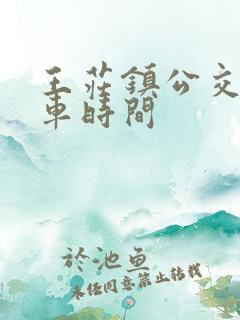 王莊鎮公交
車時間
於池魚
未经同意禁止转载